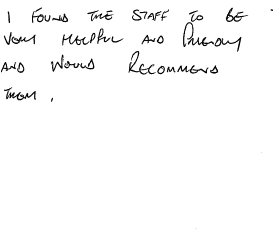 I FOUND THE STAFF TO BE
VERY HELPFUL AND FRIENDLY
AND WOULD RECOMMEND
THEM.